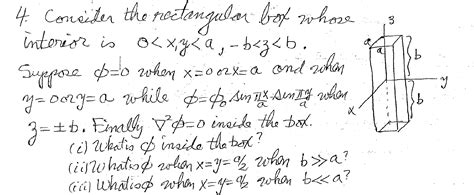 4. Consider the rectangular box whose
interior is 0<x,y<a, -b<z<b.
Suppose ϕ=0 when x=0 or x=a and when
y=0 or y=a while ϕ=ϕ₀ sin πx/a sin πy/a when
z=±b. Finally ∇²ϕ=0 inside the box.
(i) What is ϕ inside the box?
(ii) What is ϕ when x=y=a/2 when b>>a?
(iii) What is ϕ when x=y=a/2 when b<<a?
z
a
a
b
y
b
x